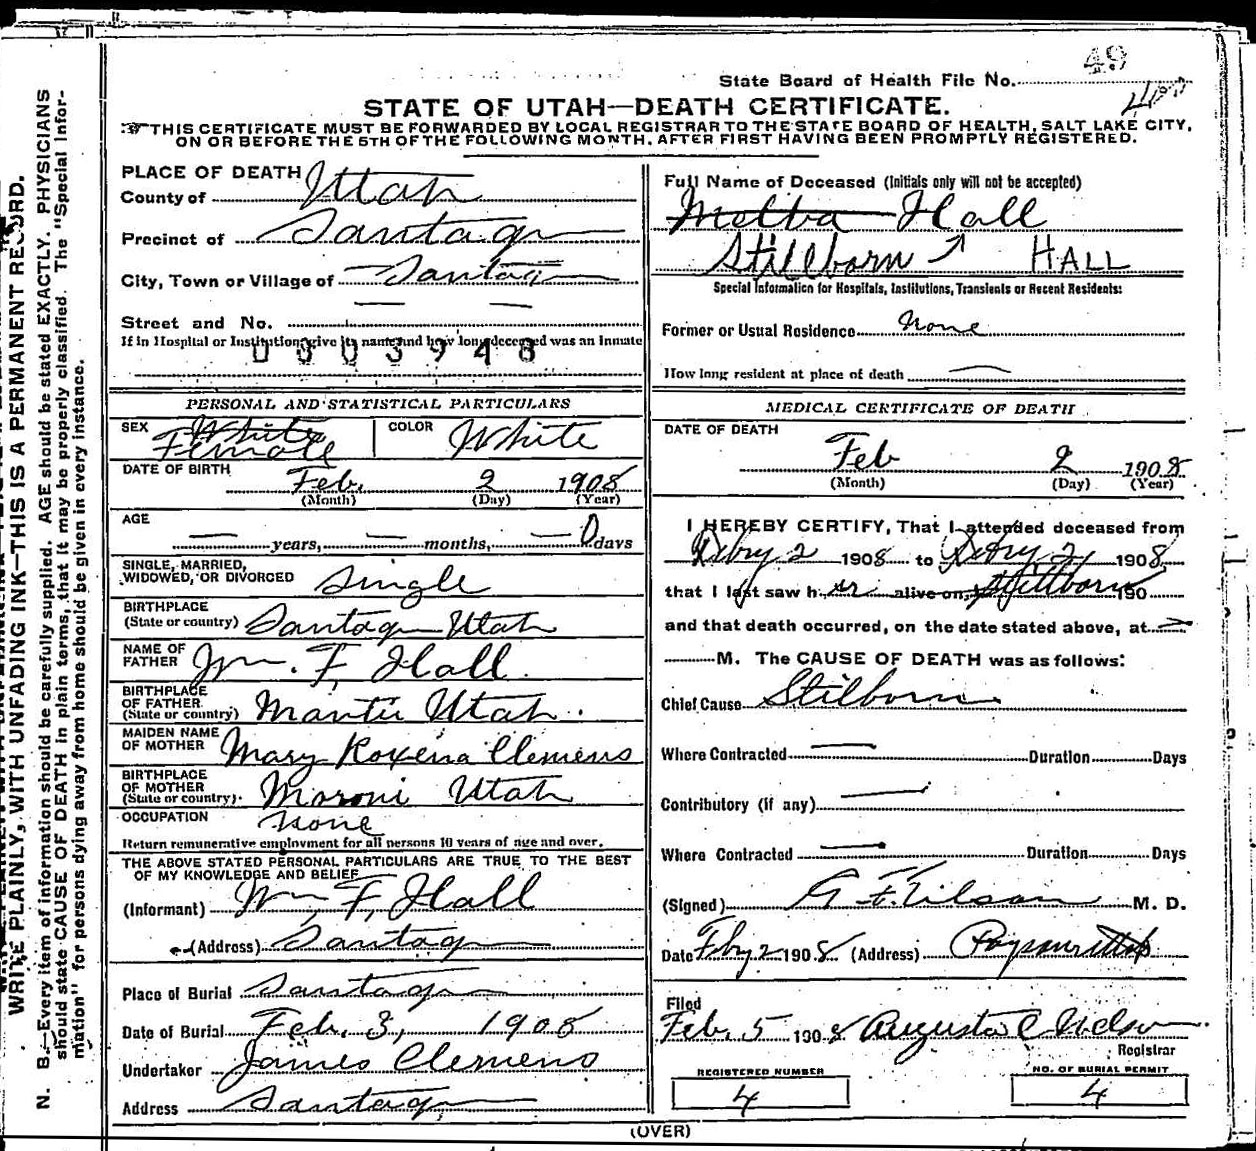 49
State Board of Health File No.
400
STATE OF UTAH—DEATH CERTIFICATE.
THIS CERTIFICATE MUST BE FORWARDED BY LOCAL REGISTRAR TO THE STATE BOARD OF HEALTH, SALT LAKE CITY,
ON OR BEFORE THE 5TH OF THE FOLLOWING MONTH, AFTER FIRST HAVING BEEN PROMPTLY REGISTERED.
PLACE OF DEATH
County of Utah
Precinct of Santaquin
City, Town or Village of Santaquin
Street and No. — —
If in Hospital or Institution give its name and how long deceased was an Inmate
0003948
PERSONAL AND STATISTICAL PARTICULARS
SEX White Female COLOR White
DATE OF BIRTH
Feb. 2 1908
(Month) (Day) (Year)
AGE
— years, — months, — 0 days
SINGLE, MARRIED,
WIDOWED, OR DIVORCED Single
BIRTHPLACE
(State or country) Santaquin Utah
NAME OF
FATHER Wm. F. Hall
BIRTHPLACE
OF FATHER
(State or country) Manti Utah.
MAIDEN NAME
OF MOTHER Mary Roxena Clemens
BIRTHPLACE
OF MOTHER
(State or country) Moroni Utah
OCCUPATION None
Return remunerative employment for all persons 10 years of age and over.
THE ABOVE STATED PERSONAL PARTICULARS ARE TRUE TO THE BEST
OF MY KNOWLEDGE AND BELIEF
(Informant) Wm. F. Hall
(Address) Santaquin
Place of Burial Santaquin
Date of Burial Feb. 3, 1908
Undertaker James Clemens
Address Santaquin
Full Name of Deceased (Initials only will not be accepted)
Melba Hall
Stillborn HALL
Special Information for Hospitals, Institutions, Transients or Recent Residents:
Former or Usual Residence None
How long resident at place of death —
MEDICAL CERTIFICATE OF DEATH
DATE OF DEATH
Feb 2 1908
(Month) (Day) (Year)
I HEREBY CERTIFY, That I attended deceased from
Febry 2 1908 to Febry 2, 1908
that I last saw her alive on, Stillborn 190
and that death occurred, on the date stated above, at —
M. The CAUSE OF DEATH was as follows:
Chief Cause Stilborn
Where Contracted — Duration Days
Contributory (if any) —
Where Contracted — Duration Days
(Signed) M. D.
Date Fby 2 1908 (Address) Payson Utah
Filed
Feb. 5 1908 Augusta C Nelson
Registrar
REGISTERED NUMBER
4
NO. OF BURIAL PERMIT
4
(OVER)
WRITE PLAINLY, WITH UNFADING INK—THIS IS A PERMANENT RECORD.
N. B.—Every item of information should be carefully supplied. AGE should be stated EXACTLY. PHYSICIANS
should state CAUSE OF DEATH in plain terms, that it may be properly classified. The "Special Infor-
mation" for persons dying away from home should be given in every instance.